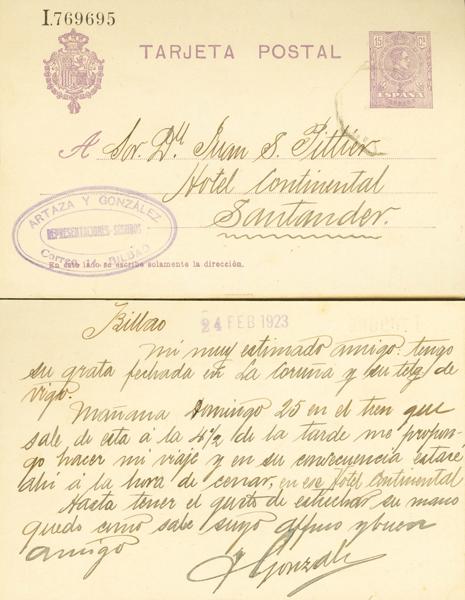 I.769695
TARJETA POSTAL
15 Cs
ESPAÑA
A Sor. Dn Juan S. Pittier
Hotel Continental
Santander.
ARTAZA Y GONZÁLEZ
REPRESENTACIONES-SEGUROS
Correo, 14 - BILBAO
En este lado se escribe solamente la dirección.
Bilbao
24 FEB 1923
Mi muy estimado amigo: tengo
su grata fechada en La Coruna y su telg de
vigo.
Manana Domingo 25 en el tren que
sale de esta á la 4½ de la tarde me propon-
go hacer mi viaje y en su consecuencia estaré
ahi á la hora de cenar, en ese Hotel Continental
Hasta tener el gusto de estrechar su mano
quedo como sabe suyo affmo y buen
amigo
Gonzalez